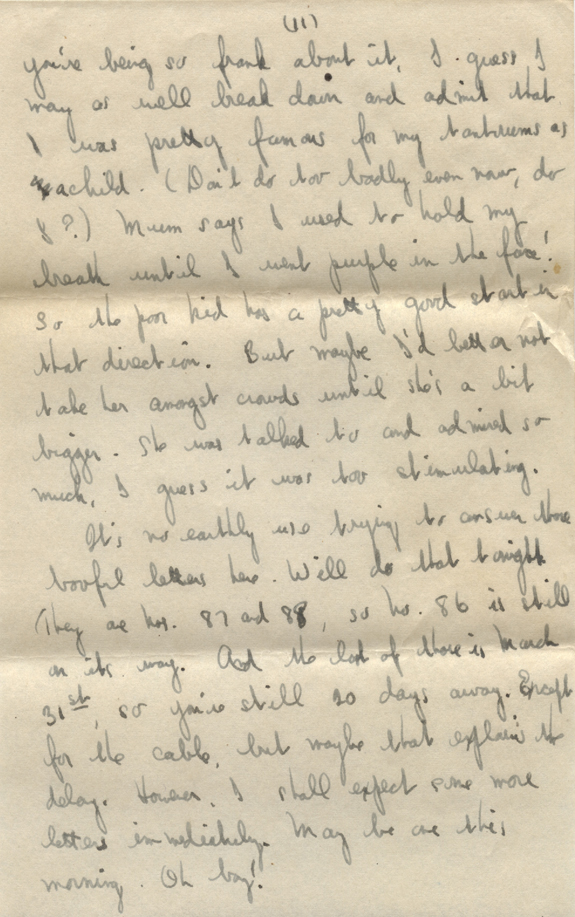 (11)
you're being so frank about it, I guess I
may as well break down and admit that
I was pretty famous for my tantrums as
a child. (Don't do too badly even now, do
I?.) Mum says I used to hold my
breath until I went purple in the face!
So the poor kid has a pretty good start in
that direction. But maybe I'd better not
take her amongst crowds until she's a bit
bigger. She was talked to and admired so
much, I guess it was too stimulating.
It's no earthly use trying to answer those
letters here. We'll do that tonight.
They are nos. 87 and 88, so no. 86 is still
on its way. And the last of those is March
31st, so you're still 20 days away. Except
for the cable, but maybe that explains the
delay. However, I shall expect some more
letters immediately. May be one this
morning. Oh boy!